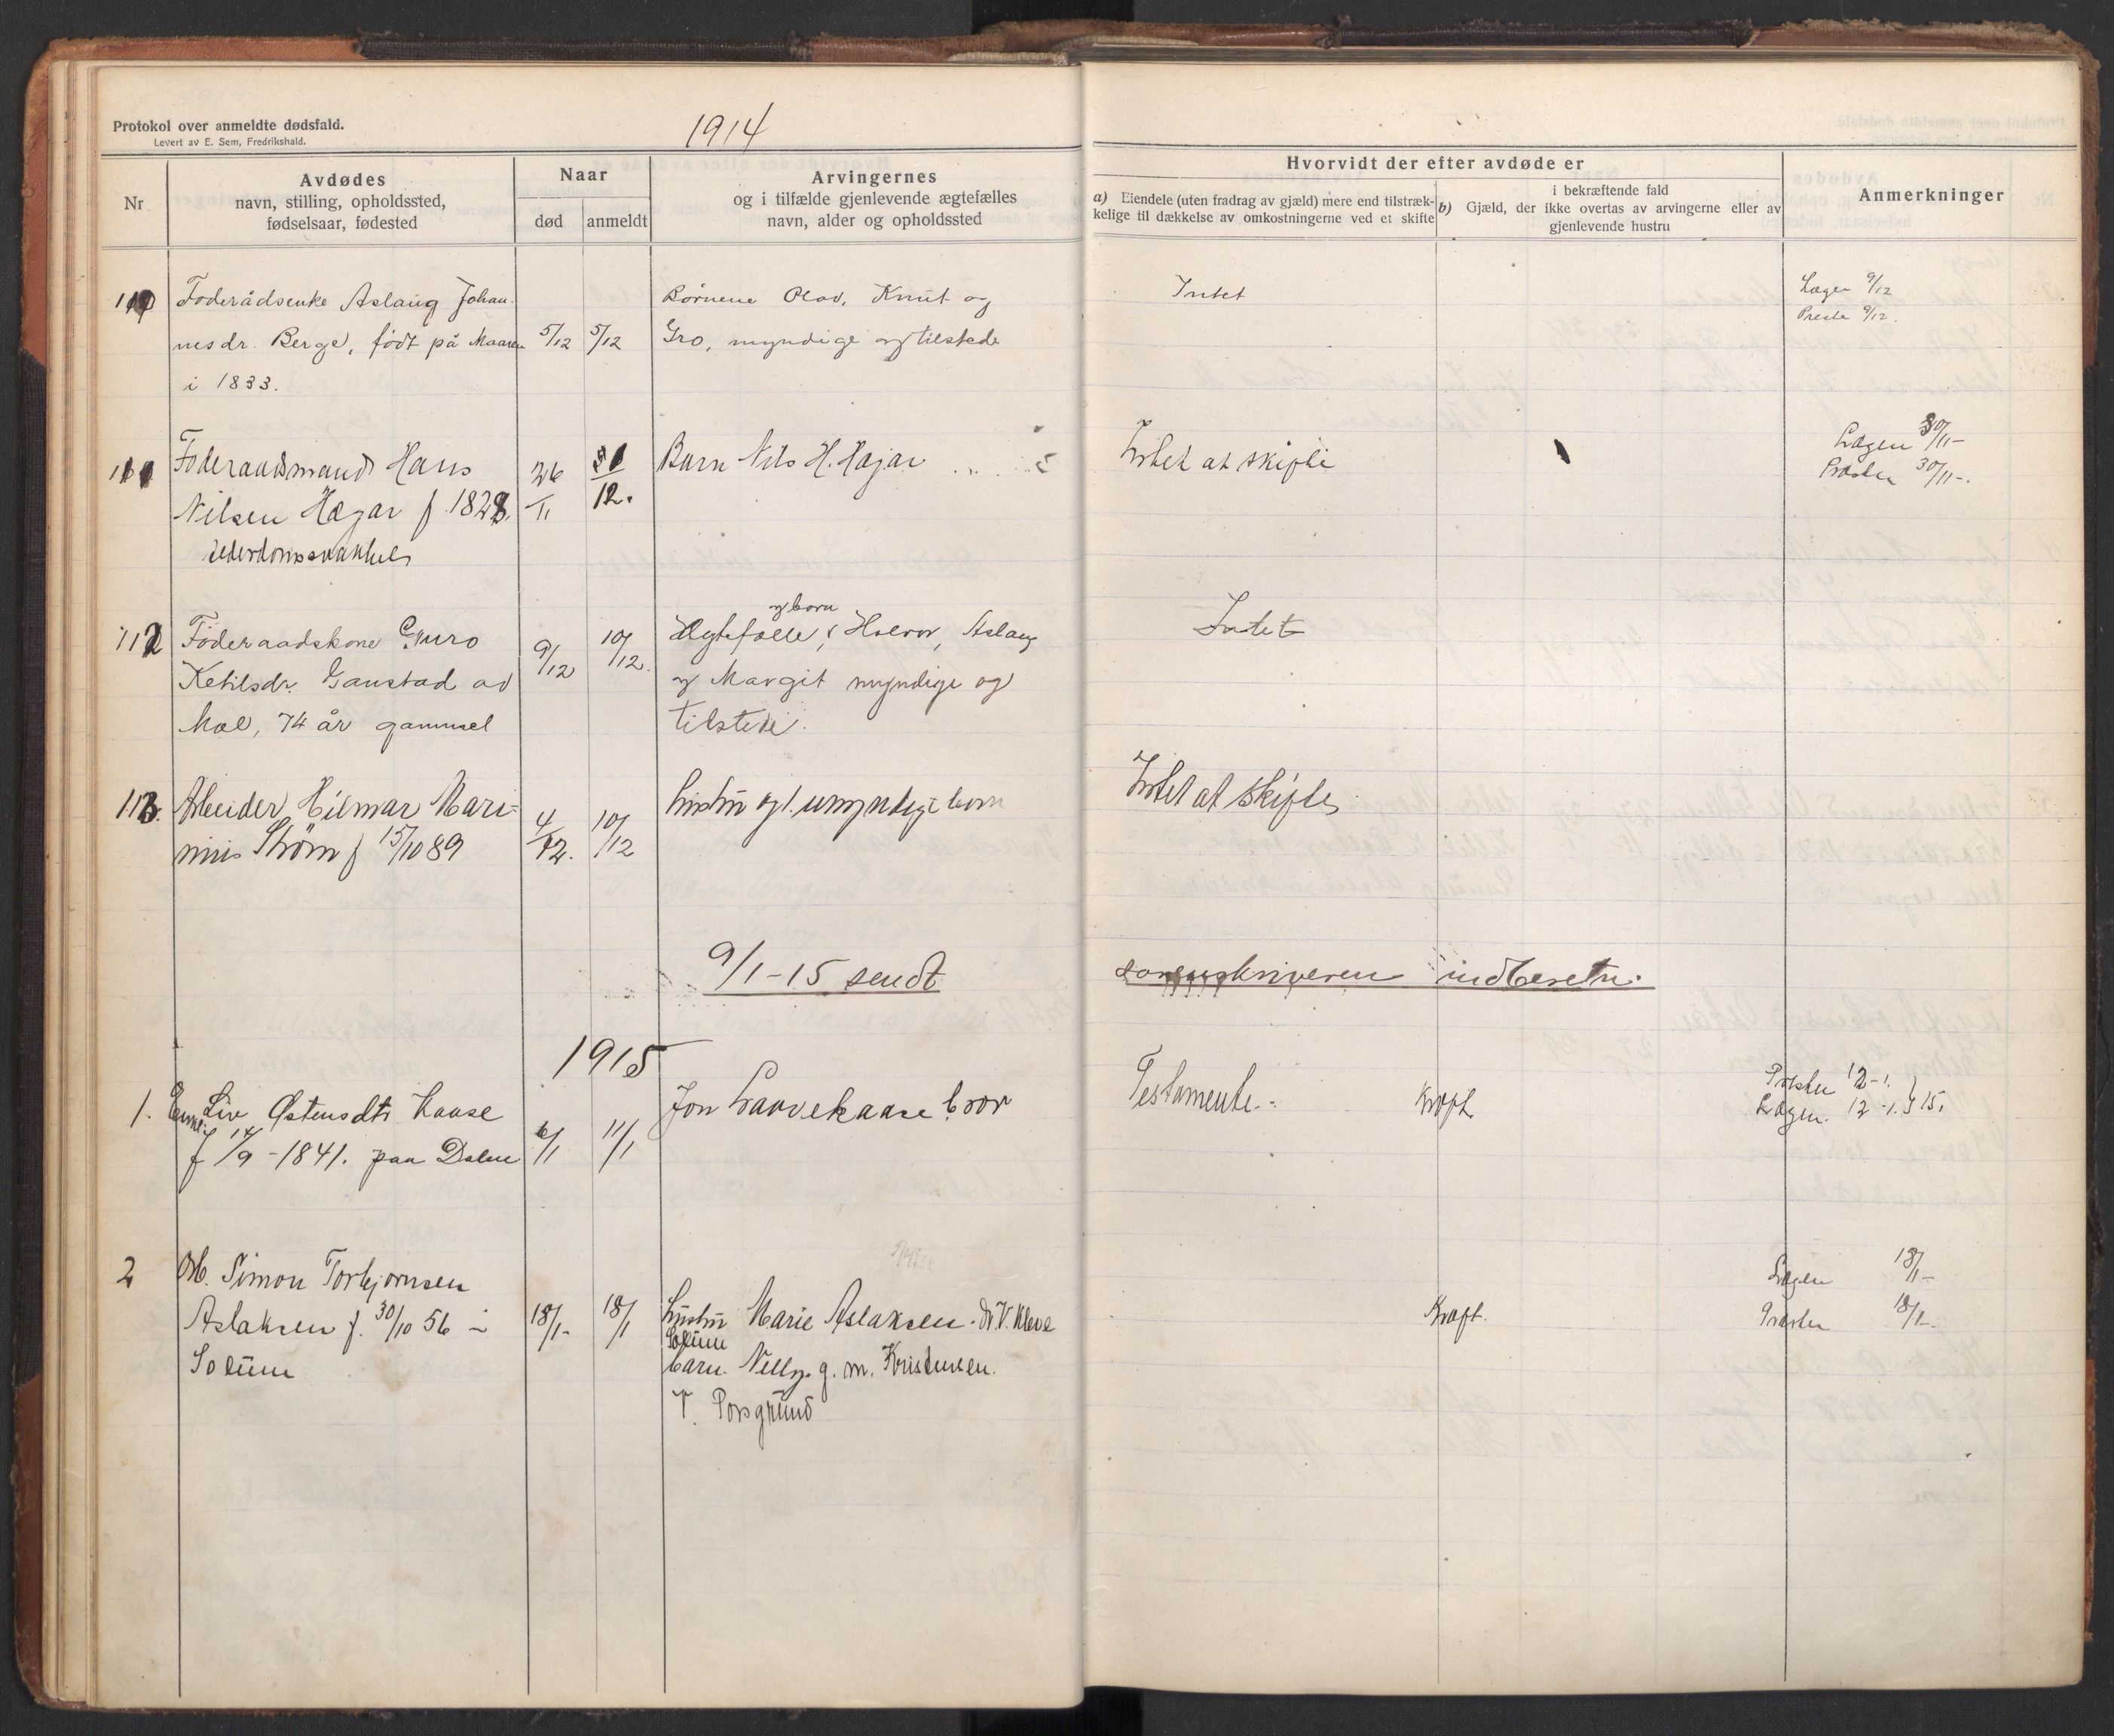 Protokol over anmeldte dødsfald.
Levert av E. Sem, Fredrikshald.
1914
Nr
Avdødes
navn, stilling, opholdssted,
fødselsaar, fødested
Naar
død
anmeldt
Arvingernes
og i tilfælde gjenlevende ægtefælles
navn, alder og opholdssted
Hvorvidt der efter avdøde er
a) Eiendele (uten fradrag av gjæld) mere end tilstræk-
kelige til dækkelse av omkostningerne ved et skifte
i bekræftende fald
b) Gjæld, der ikke overtas av arvingerne eller av
gjenlevende hustru
Anmerkninger
Foderådsenke Aslaug Johan-
nesdr. Berge, født på Maaren
i 1833.
5/12
5/12
Børnene Olav, Knut og
Gro, myndige og tilstede
Intet
Lægen 9/12
Preste 9/12.
Foderaadsmand Hans
Nilsen Hægar f 1828.
26/11
1/12.
Barn Nils H. Hægar
Intet at skifte
Lægen 30/11-
Præsten 30/11-.
112
Føderaadskone Guro
Ketilsdr. Gaustad av
Mæl, 74 år gammel
9/12
10/12.
og børn
Ægtefælle, Halvor, Aslaug
og Margit myndige og
tilstede.
Intet
113.
Arbeider Hilmar Mari-
nius Strøm f 15/10 89
4/12.
10/12
hustru og 1. umyndig barn
Intet at skifte
9/1-15 sendt
sorenskriveren indberetn.
1915
1.
Enke Liv Østensdtr Kaase
f 14/9-1841. paa Dalen
6/1
11/1
Jon Laavekaase bror
Testamente.
Kræft
Præsten 12-1.
Lægen. 12-1. } 15.
2
Simon Torbjørnsen
Aslaksen f. 30/10 56 i
Solum
18/1-
18/1
hustru Marie Aslaksen. Kleve
Solum
barn. Nelly. g. m. Kristensen.
V. Porsgrund
Kræft.
Lægen 18/1-
Præsten 18/1-.